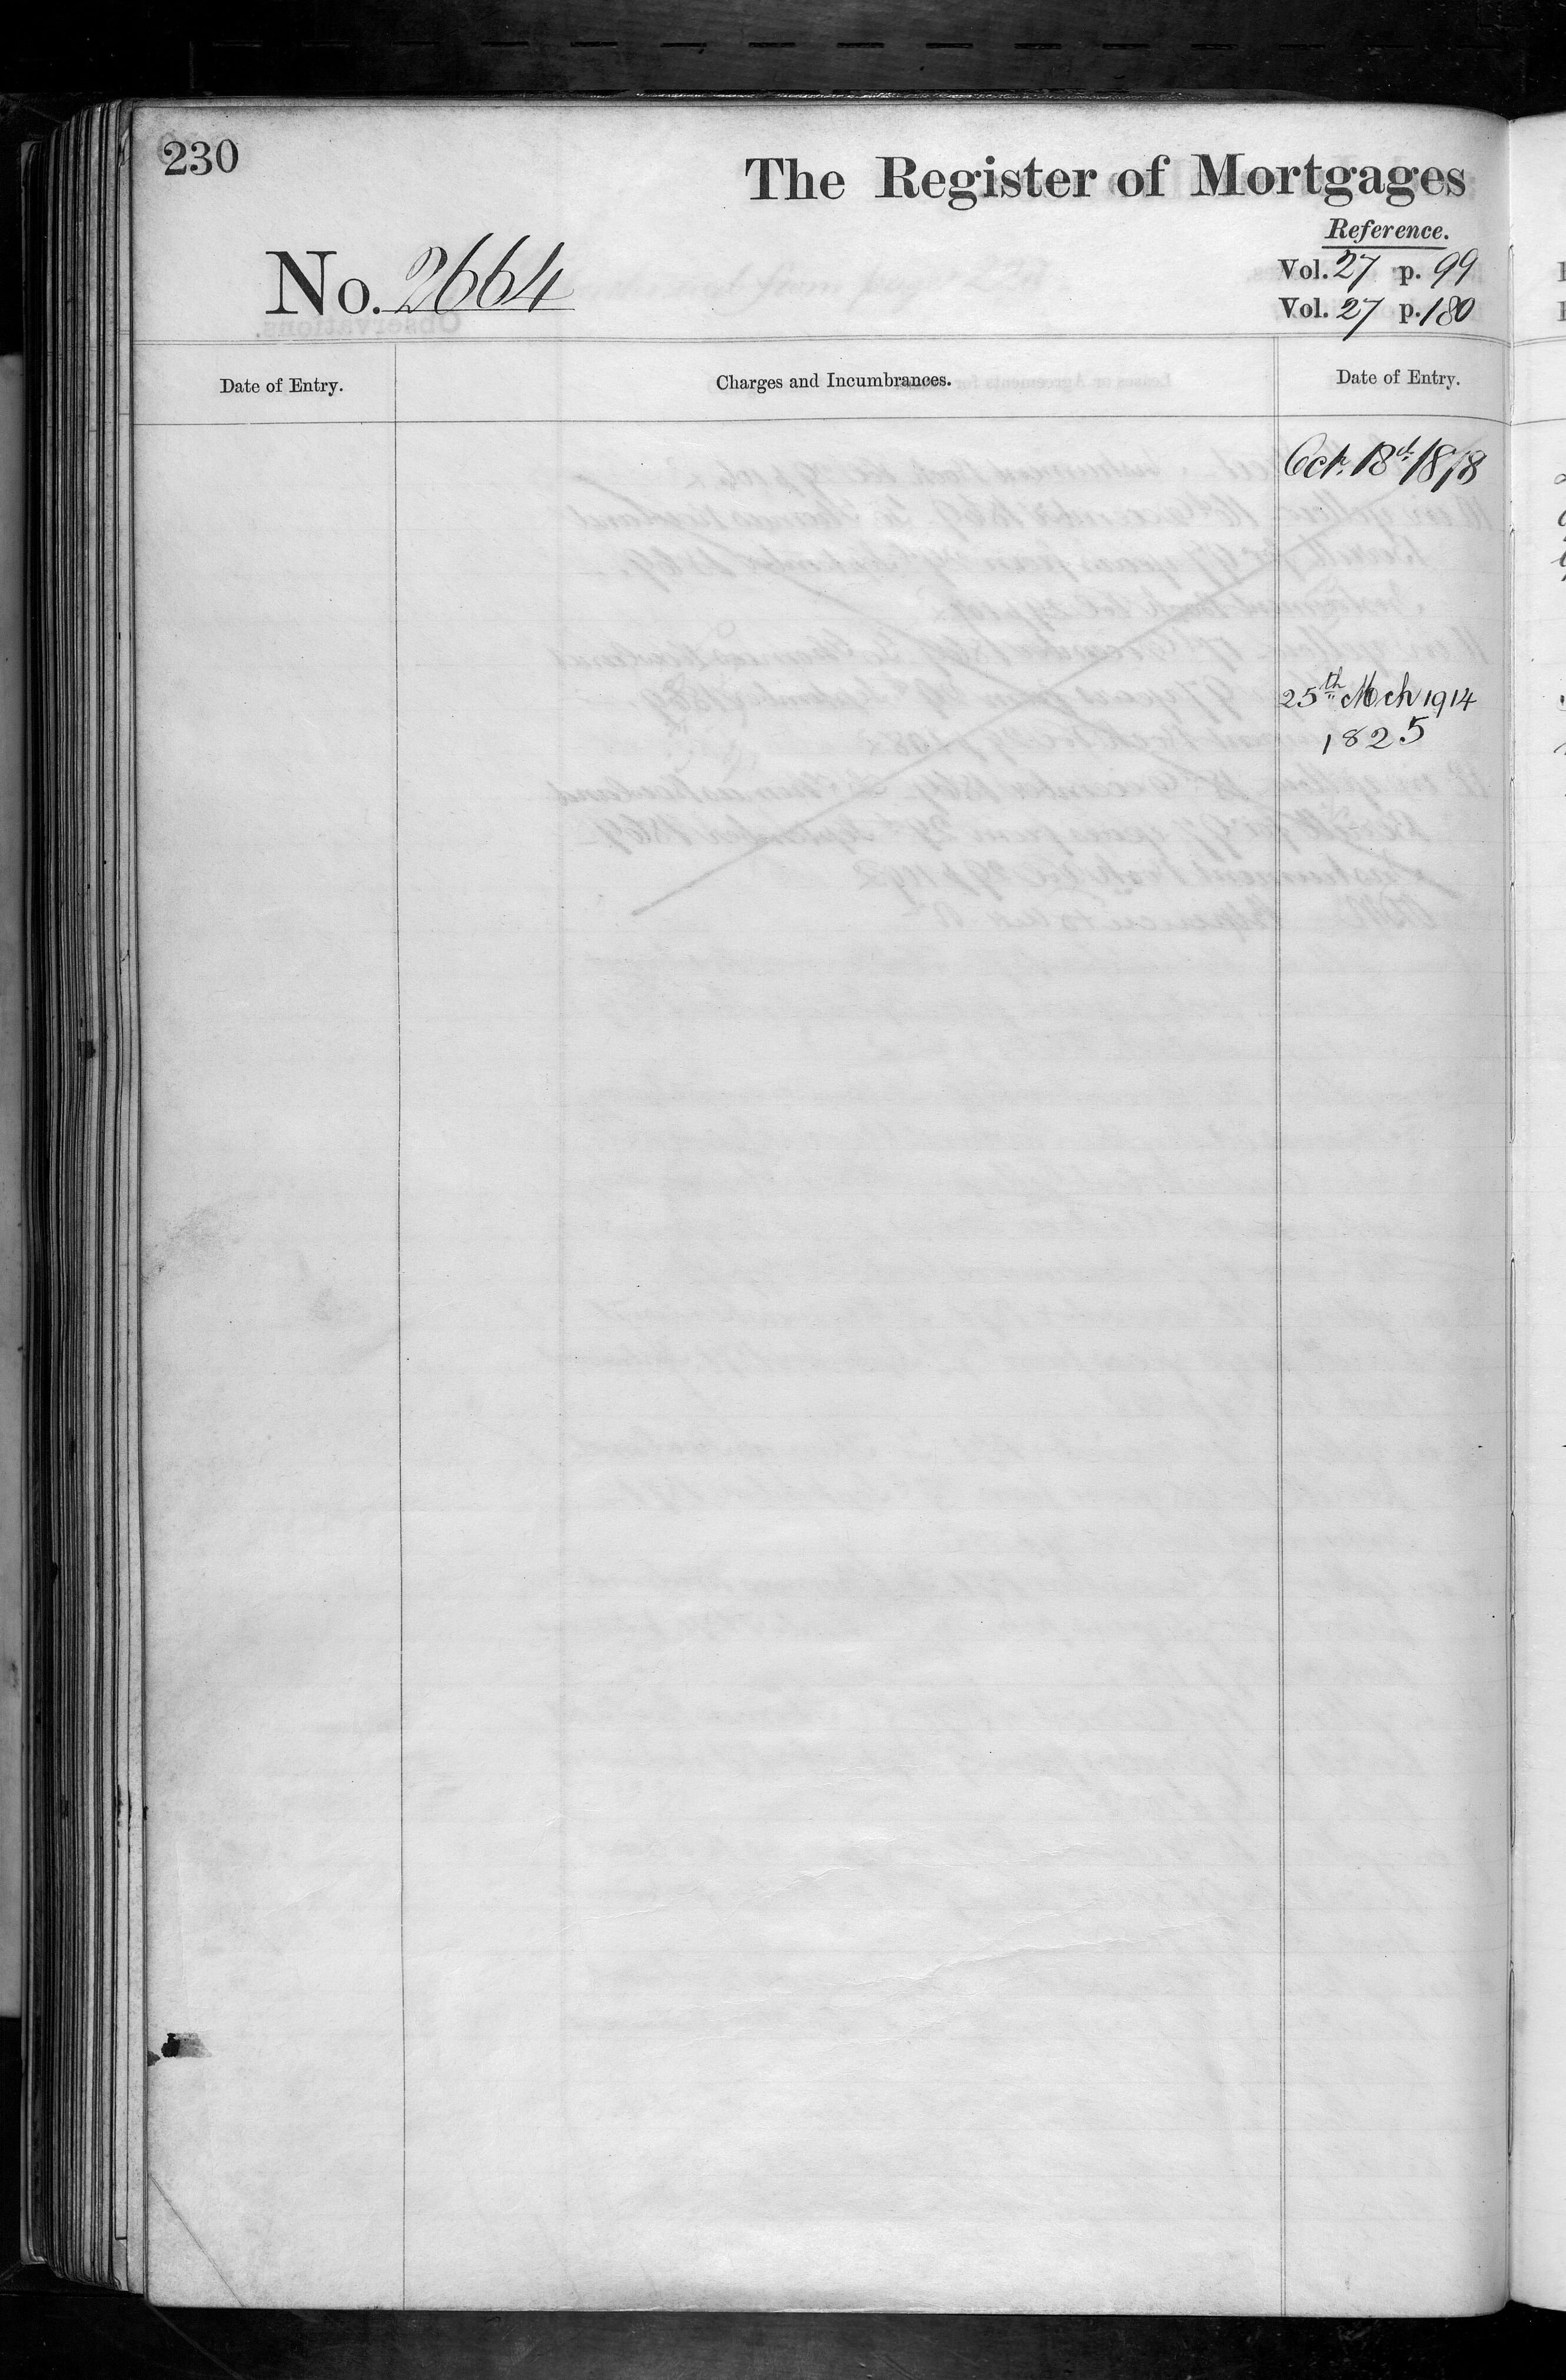 230
The Register of Mortgages
Reference.
No. 2664
Vol. 27 p. 99
Vol. 27 p. 180
Date of Entry.
Charges and Incumbrances.
Date of Entry.
Octr. 18th 1878
25th Mch 1914
1825